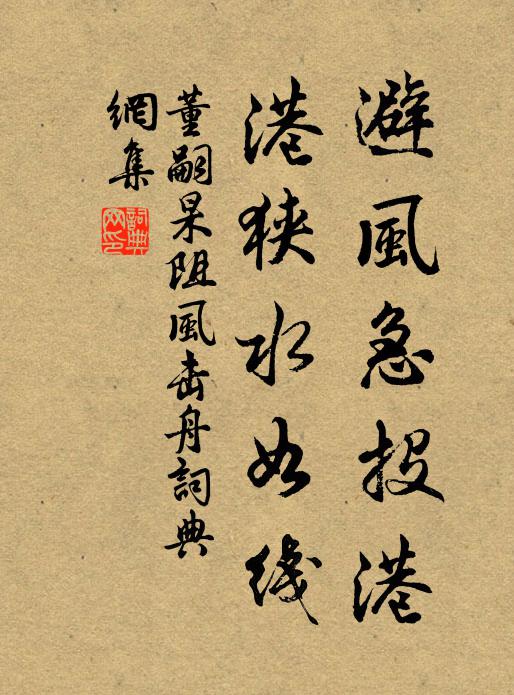 避風急投港
港狹水如綫
董嗣杲阻風击舟詞典
網集
詞典
网印